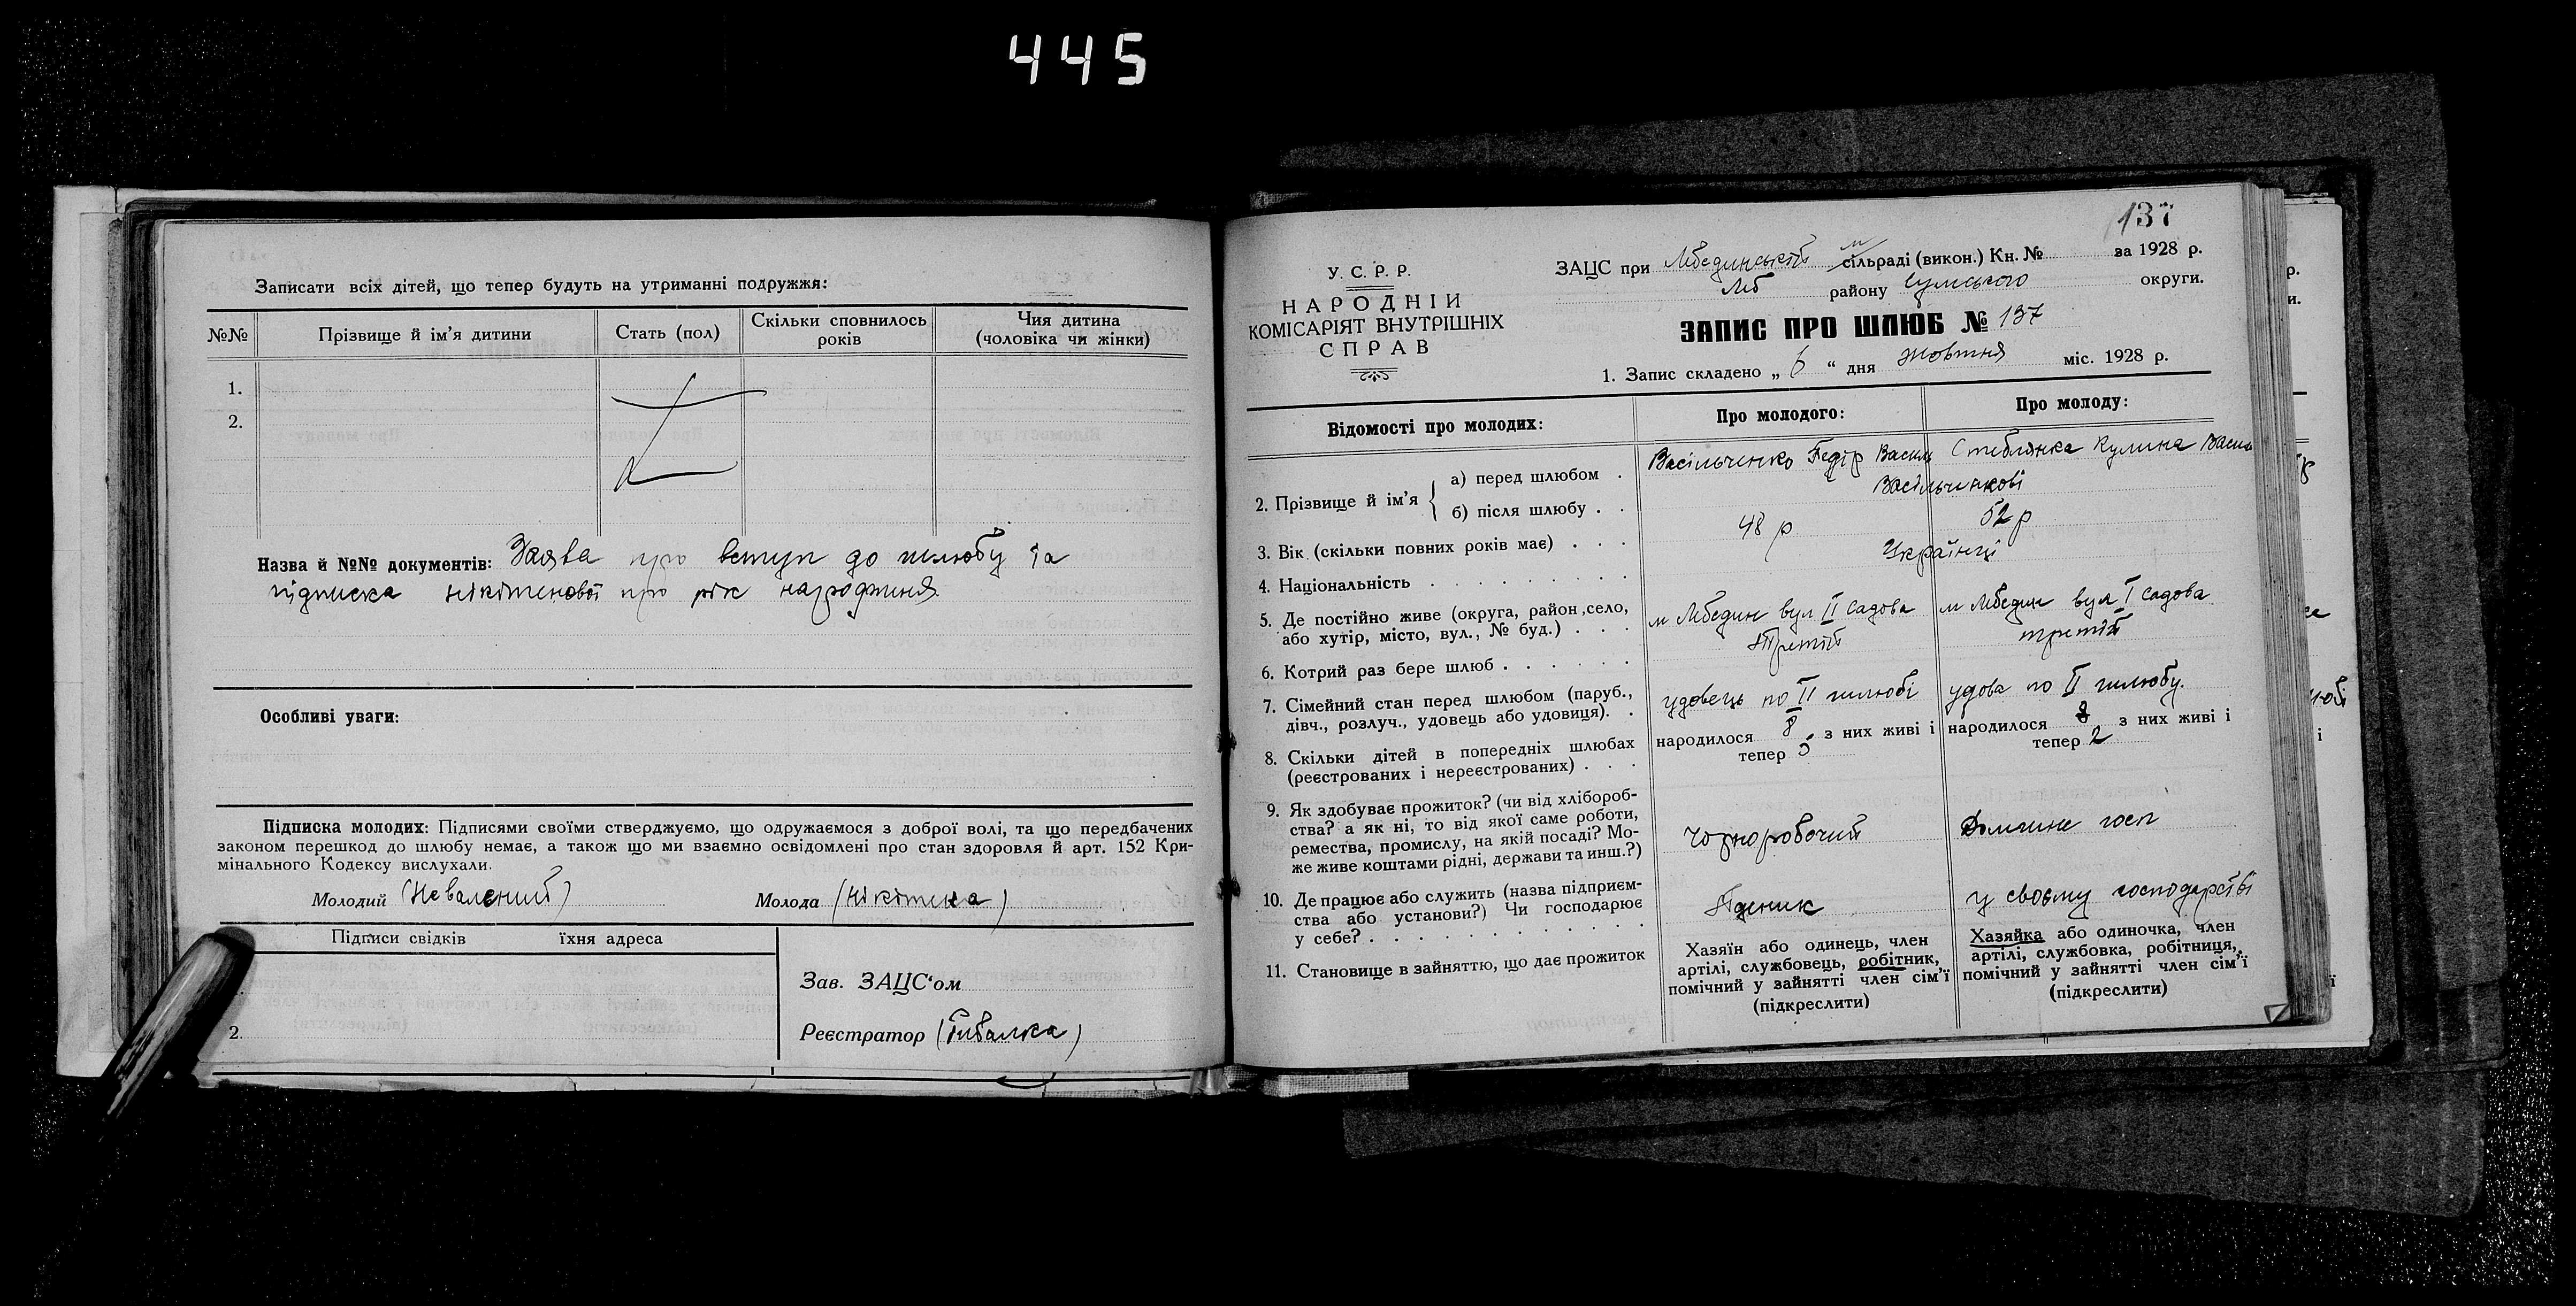 445
Записати всіх дітей, що тепер будуть на утриманні подружжя:
№№ Прізвище й ім'я дитини Стать (пол) Скільки сповнилось років Чия дитина (чоловіка чи жінки)
1.
2.
Назва й №№ документів: Заява про вступ до шлюбу та
підписка Нікітенової про рік народження
Особливі уваги:
Підписка молодих: Підписями своїми стверджуємо, що одружаємося з доброї волі, та що передбачених
законом перешкод до шлюбу немає, а також що ми взаємно освідомлені про стан здоровля й арт. 152 Кри-
мінального Кодексу вислухали.
Молодий (Невалений) Молода (Нікітина)
Підписи свідків їхня адреса
2.
Зав. ЗАЦС'ом
Реєстратор (Рибалка)
137
У. С. Р. Р.
НАРОДНІЙ
КОМІСАРІЯТ ВНУТРІШНІХ
СПРАВ
ЗАЦС при Лебединській м сільраді (викон.) Кн. № за 1928 р.
Леб району Сумського округи.
ЗАПИС ПРО ШЛЮБ № 137
1. Запис складено „ 6 “ дня жовтня міс. 1928 р.
Відомості про молодих: Про молодого: Про молоду:
2. Прізвище й ім'я
а) перед шлюбом . Васільченко Федір Василь Стеблянка Кулина Васил
б) після шлюбу . . Васільченкові
3. Вік (скільки повних років має) . . . 48 р 52 р
4. Національність . . . . . . . . . Українці
5. Де постійно живе (округа, район, село,
або хутір, місто, вул., № буд.) . . .
м Лебедин вул II Садова
м Лебедин вул I Садова
6. Котрий раз бере шлюб . . . . . . Третій третій
7. Сімейний стан перед шлюбом (паруб.,
дівч., розлуч., удовець або удовиця). .
удовець по II шлюбі
удова по II шлюбу.
8. Скільки дітей в попередніх шлюбах
(реєстрованих і нереєстрованих) . . .
народилося 8 з них живі і
тепер 5
народилося 8 з них живі і
тепер 2
9. Як здобуває прожиток? (чи від хлібороб-
ства? а як ні, то від якої саме роботи,
ремества, промислу, на якій посаді? Мо-
же живе коштами рідні, держави та инш.?)
Чорноробочий
Домашнє госп
10. Де працює або служить (назва підприєм-
ства або установи?) Чи господарює
у себе? . . . . . . . . . . . .
Підденик
у своєму господарстві
11. Становище в зайняттю, що дає прожиток
Хазяїн або одинець, член
артілі, службовець, робітник,
помічний у зайнятті член сім'ї
(підкреслити)
Хазяйка або одиночка, член
артілі, службовка, робітниця,
помічний у зайнятті член сім'ї
(підкреслити)